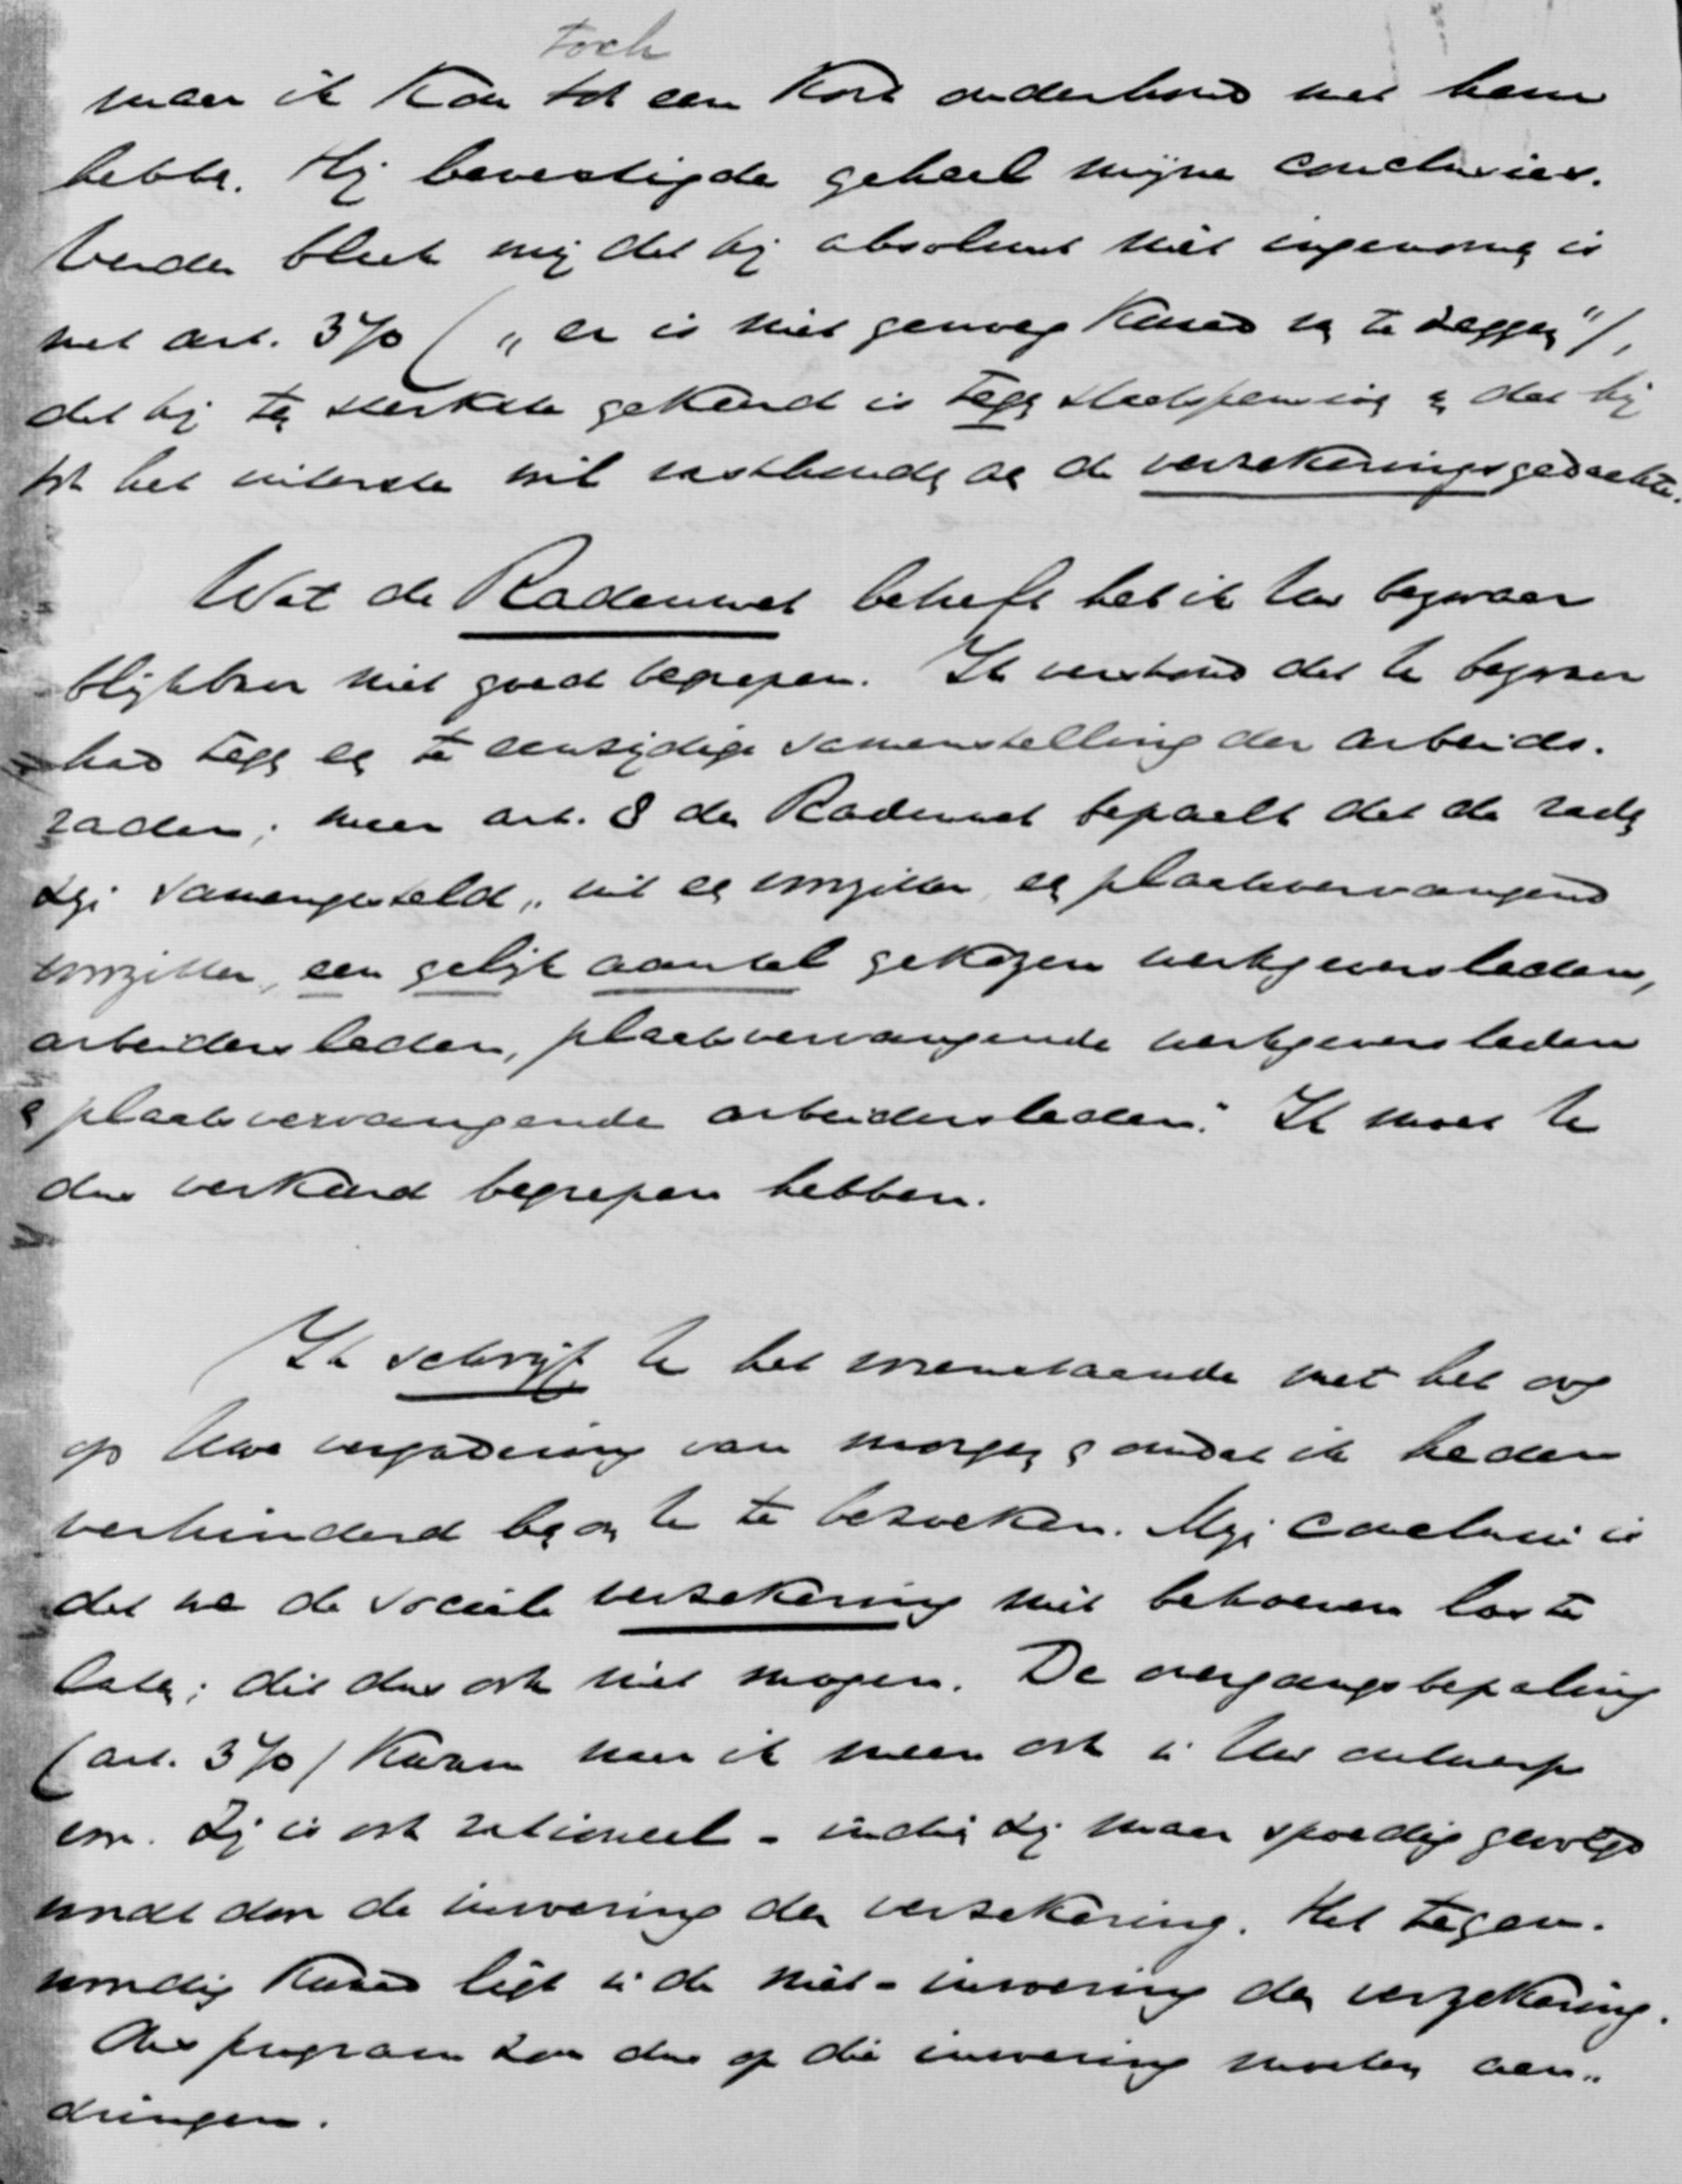 toch
maar ik kon tot een kort onderhoud met hem
hebbe. Hij bevestigde geheel mijne conclusies.
Verder bleek mij dat hij absoluut niet ingenomen is
met art. 370 („er is niet genoeg kwaad van te zeggen"),
dat hij ten sterkste gekant is tegen staatspensioen en dat hij
tot het uiterste wil vasthouden aan de verzekeringsgedachte.
Wat de Radenwet betreft heb ik Uw bezwaar
blijkbaar niet goed begrepen. Ik verstond dat U bezwaar
had tegen een te eenzijdige samenstelling der arbeids-
raden; maar art. 8 der Radenwet bepaalt dat de raden
zijn samengesteld „uit een voorzitter, een plaatsvervangend
voorzitter, een gelijk aantal gekozen werkgeversleden,
arbeidersleden, plaatsvervangende werkgeversleden
en plaatsvervangende arbeidersleden." Ik moet U
dus verkeerd begrepen hebben.
Ik schrijf U het bovenstaande met het oog
op Uwe vergadering van morgen en omdat ik heden
verhinderd ben om U te bezoeken. Mijn conclusie is
dat we de sociale verzekering niet behoeven los te
laten; dit dus ook niet mogen. De overgangsbepaling
(art. 370) kwam naar ik meen ook in Uw ontwerp
voor. Zij is ook rationeel - indien zij maar spoedig gevolgd
wordt door de invoering der verzekering. Het tegen-
woordig kwaad ligt in de niet-invoering der verzekering.
Ons program zou dus op die invoering moeten aan-
dringen.